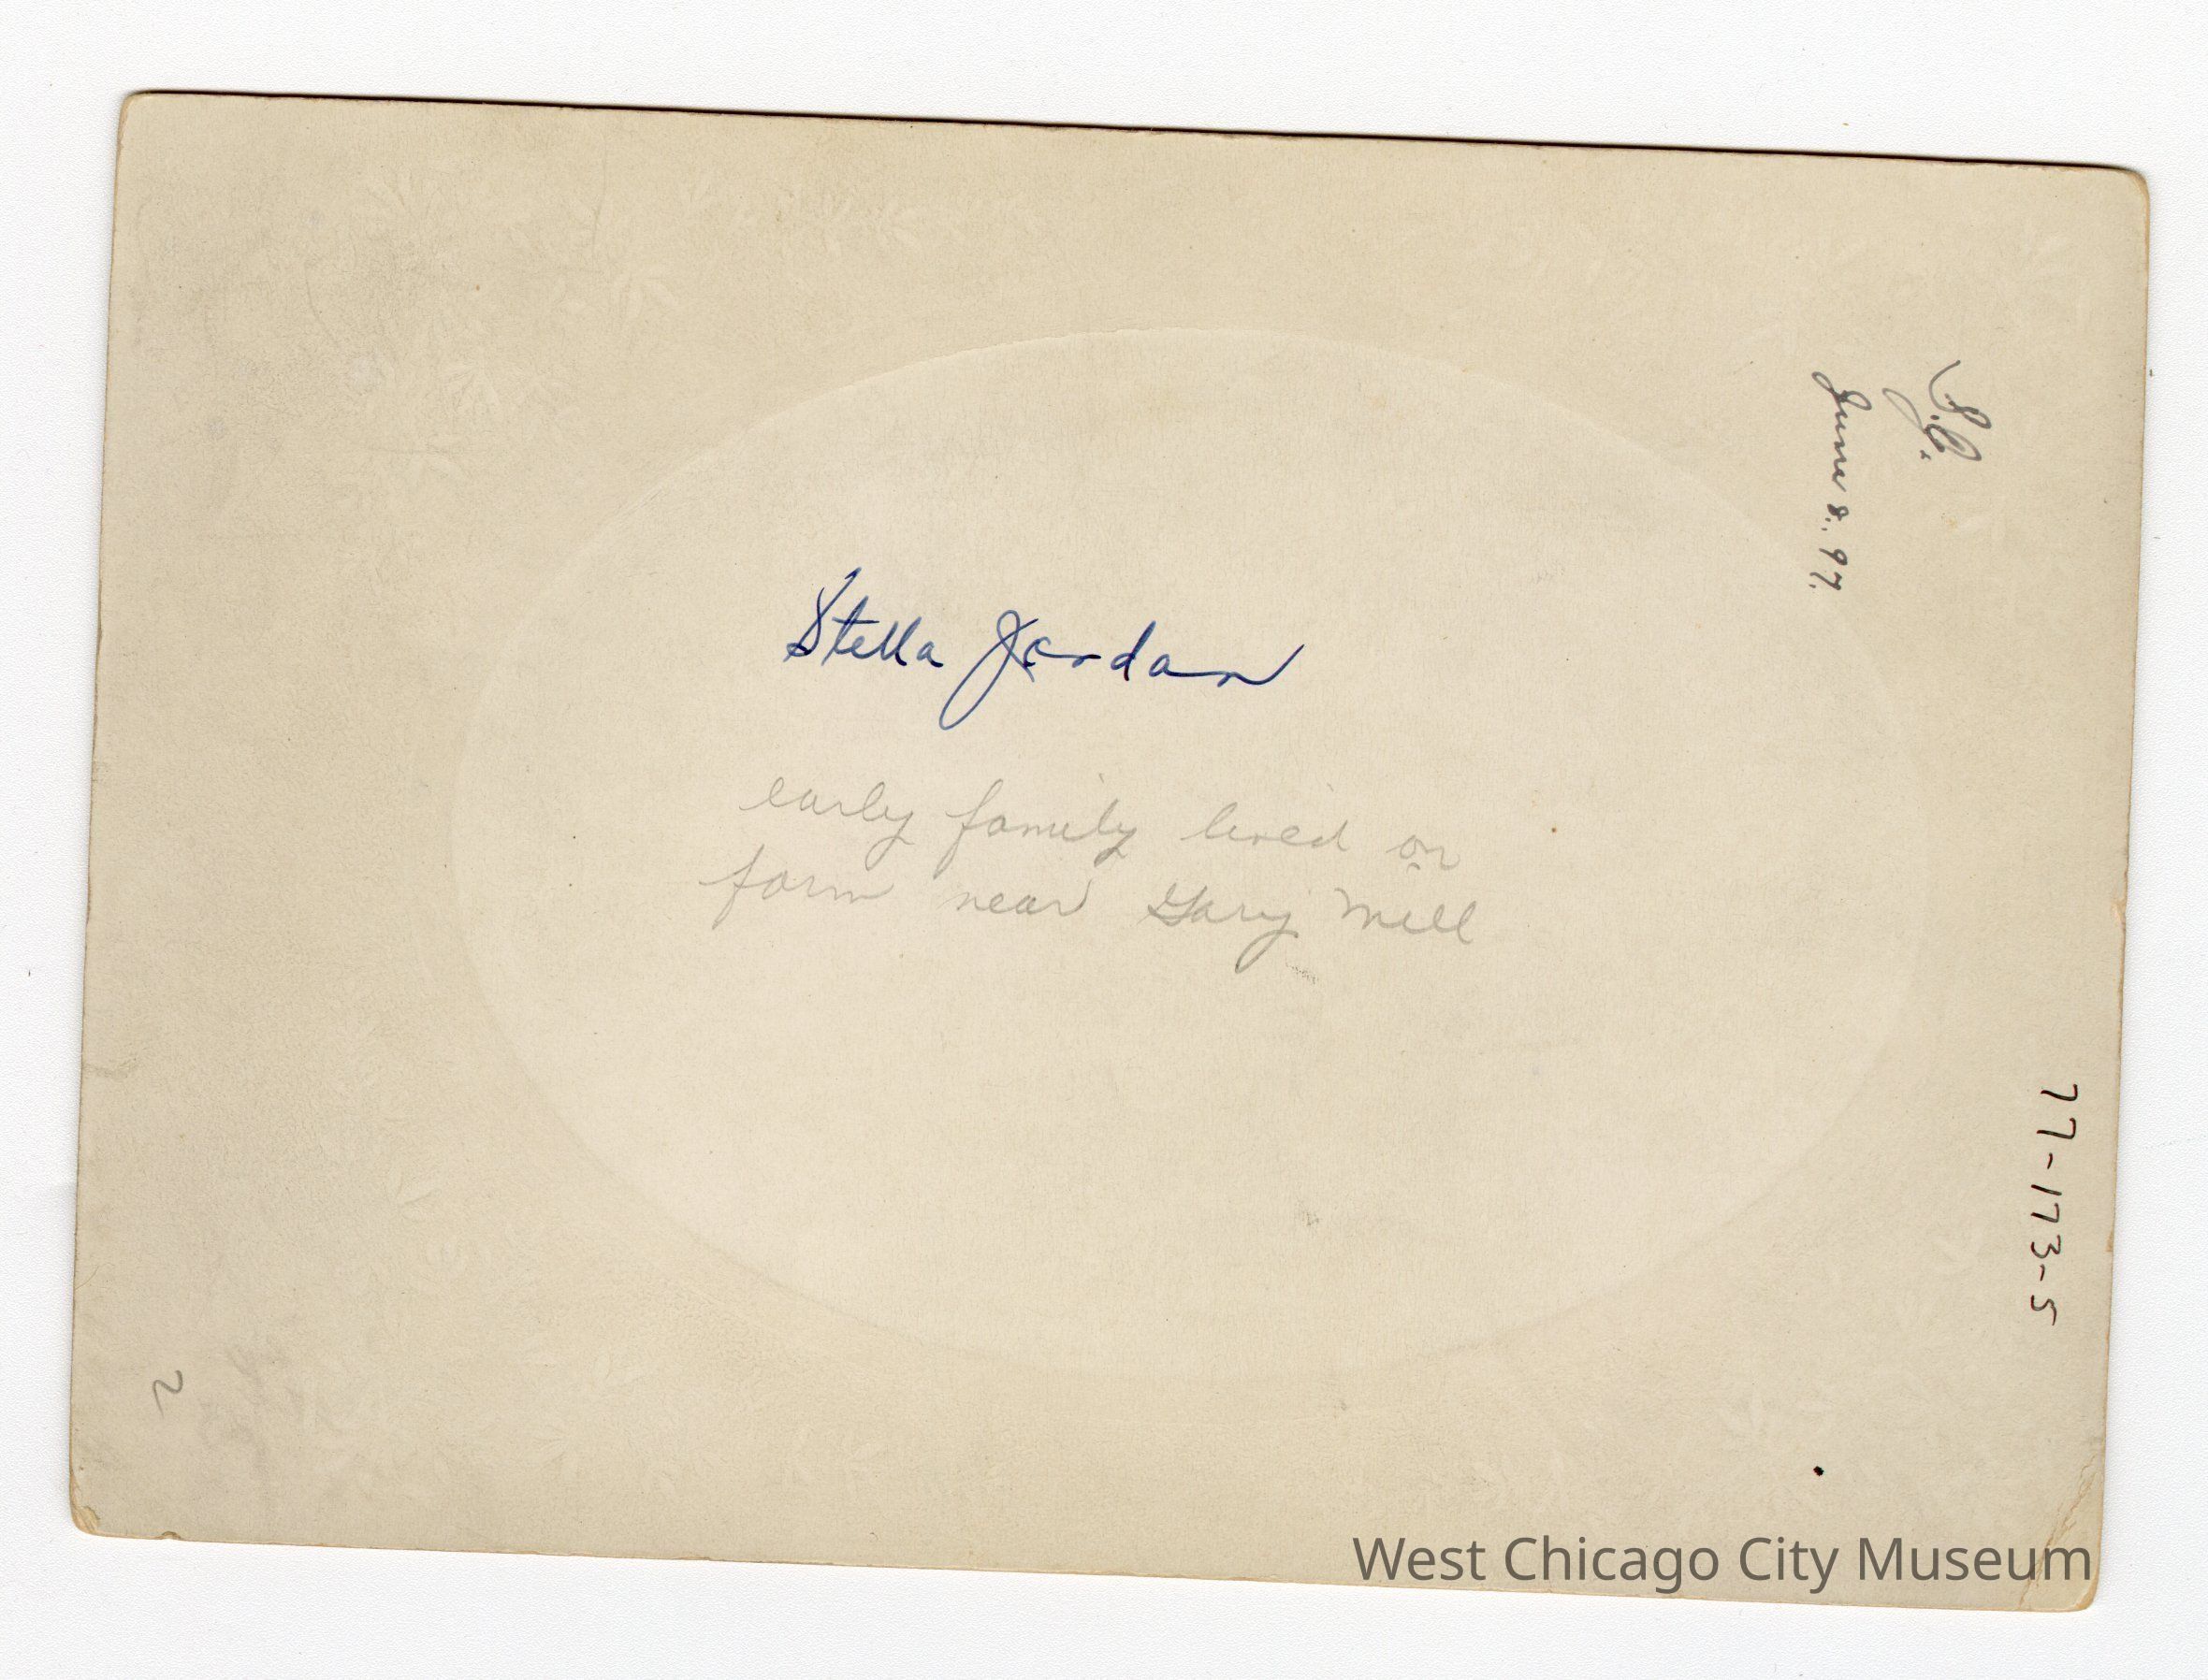 Stella Jordan
early family lived on
farm near Gary Mill
June 8. 97.
77-173-5
2
West Chicago City Museum